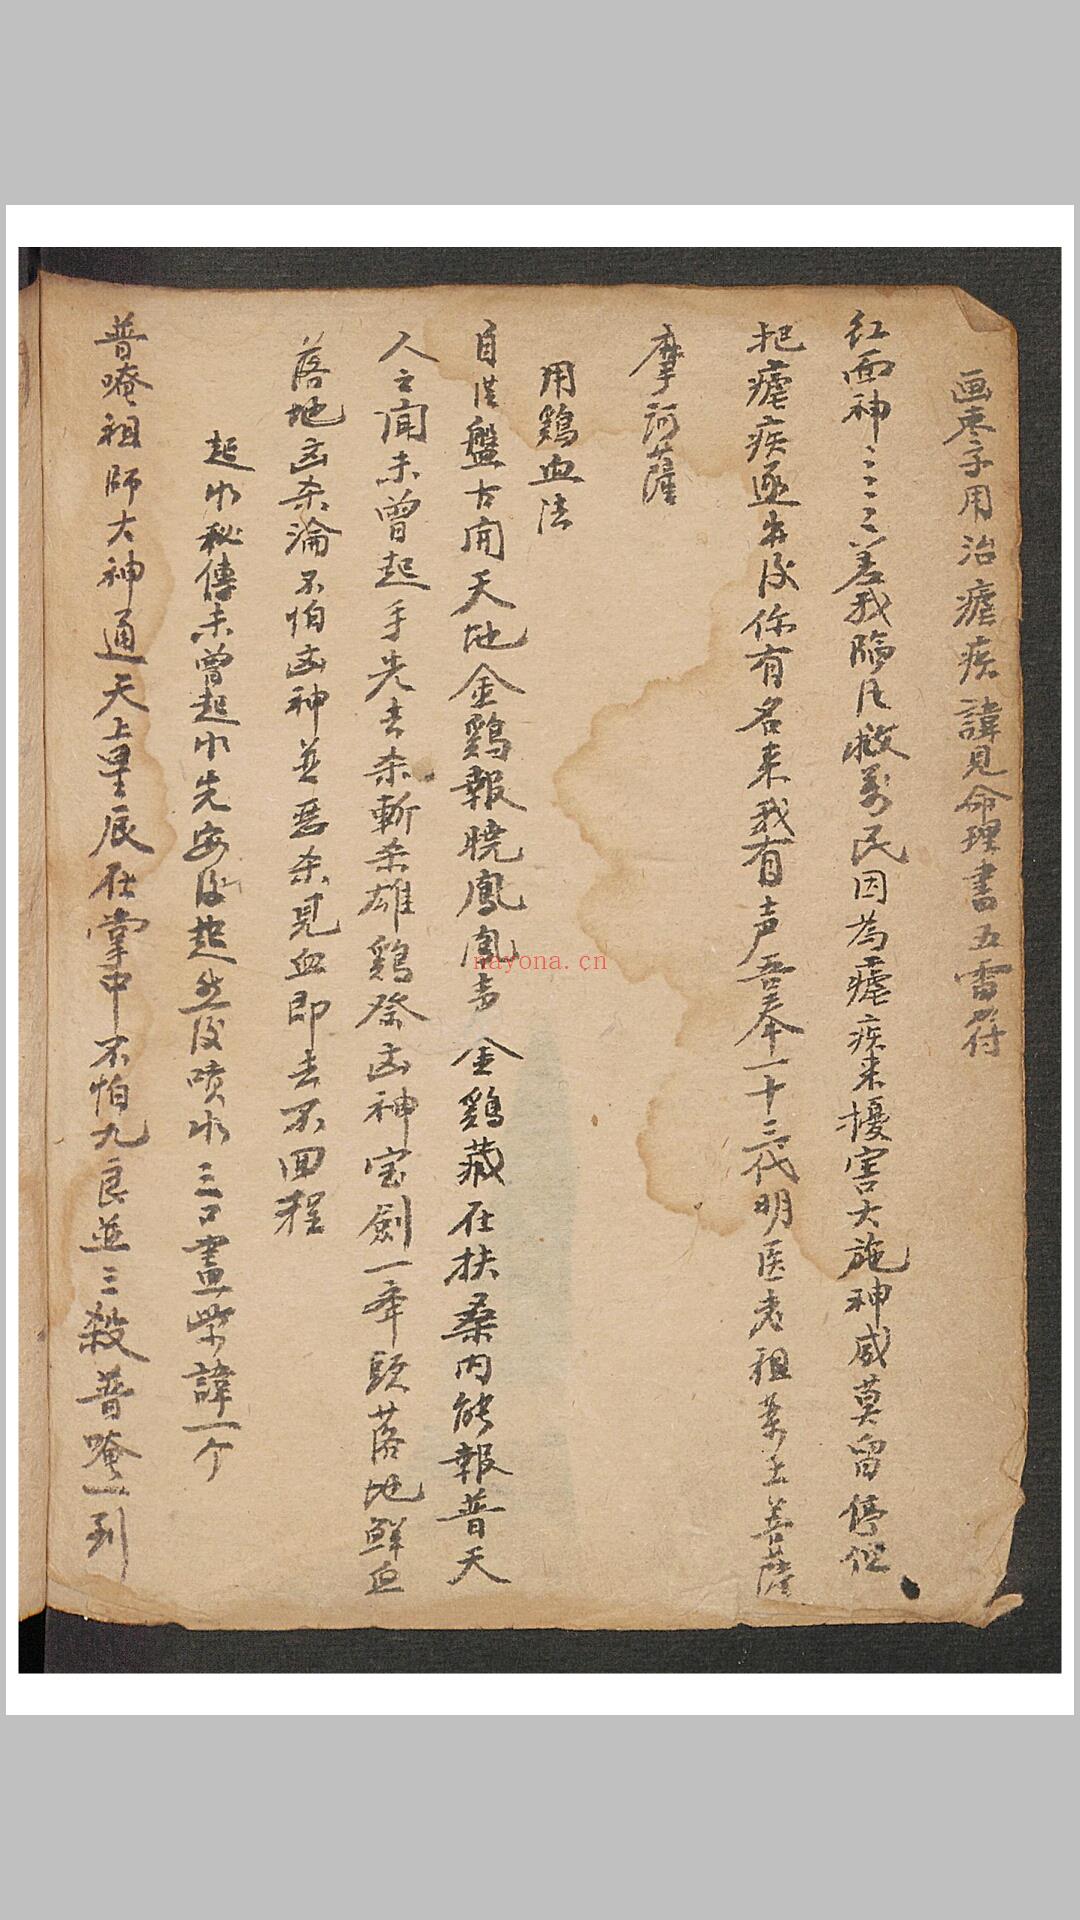 画枣子用治瘧疾諱見命理書五雷符
红面神ミミミ差我臨凡救萬民因為瘧疾来擾害大施神威莫留停
把瘧疾逐出後你有名来我有声吾奉一十三代明医老祖藥王菩薩
摩訶薩
用鷄血法
自従盤古開天地金鷄報曉鳳凰声金鷄藏在扶桑内能報普天
人ミ聞未曾起手先去杀斬杀雄鷄祭凶神宝劍一奉頭落地鮮血
落地凶杀淪不怕凶神並恶杀見血即去不回程
起水秘傳未曾起水先安後起然後喷水三口畫紫諱一个
普唵祖師大神通天上星辰在掌中不怕九良並三殺普唵一到
nayona.cn